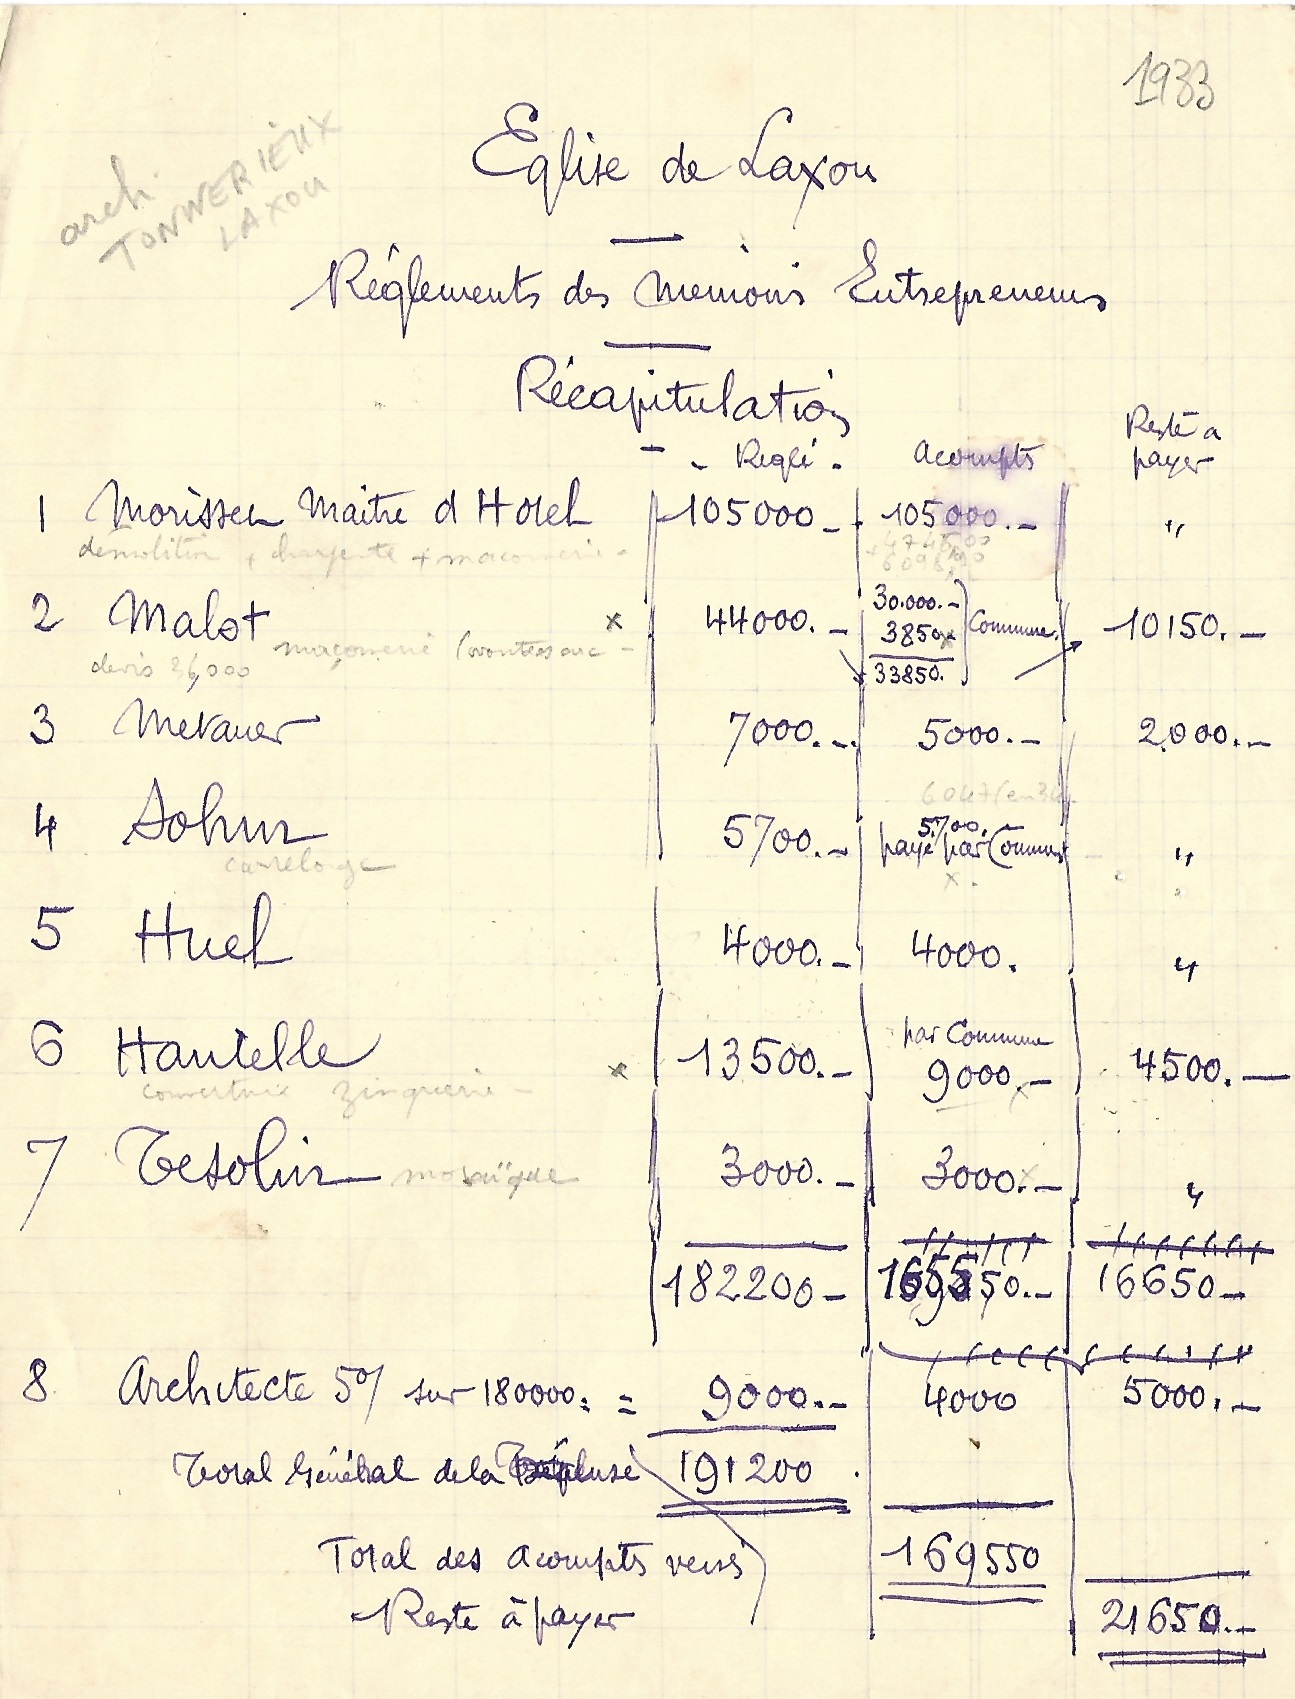 1933
arch. TONNERIEUX
LAXOU
Eglise de Laxou
Réglements des Memoirs Entrepreneurs
Récapitulation
Reglé. Acompts Resté a payer
1 Morisseu Maitre d Hotel 105000.- 105000.- "
démolition + charpente + maçonnerie
2 Malot x 44000.- 30.000.- 3850 33850. Commune. 10150.-
maçonnerie
devis 36,000
3 7000.- 5000.- 2.000.-
6047 (en 34)
4 5700.- 5700. payé par Commune "
carrelage x.
5 Huel 4000.- 4000. "
6 Hantelle x 13500.- par Commune 9000.- 4500.-
couverture zinguerie
7 Tesolin mosaïque 3000.- 3000.- "
182200- 165550.- 16650-
8 Architecte 5% sur 180000. = 9000.- 4000 5000.-
Total Général de la Dépense 191200.
Total des acompts versés 169550
Reste à payer 21650.-